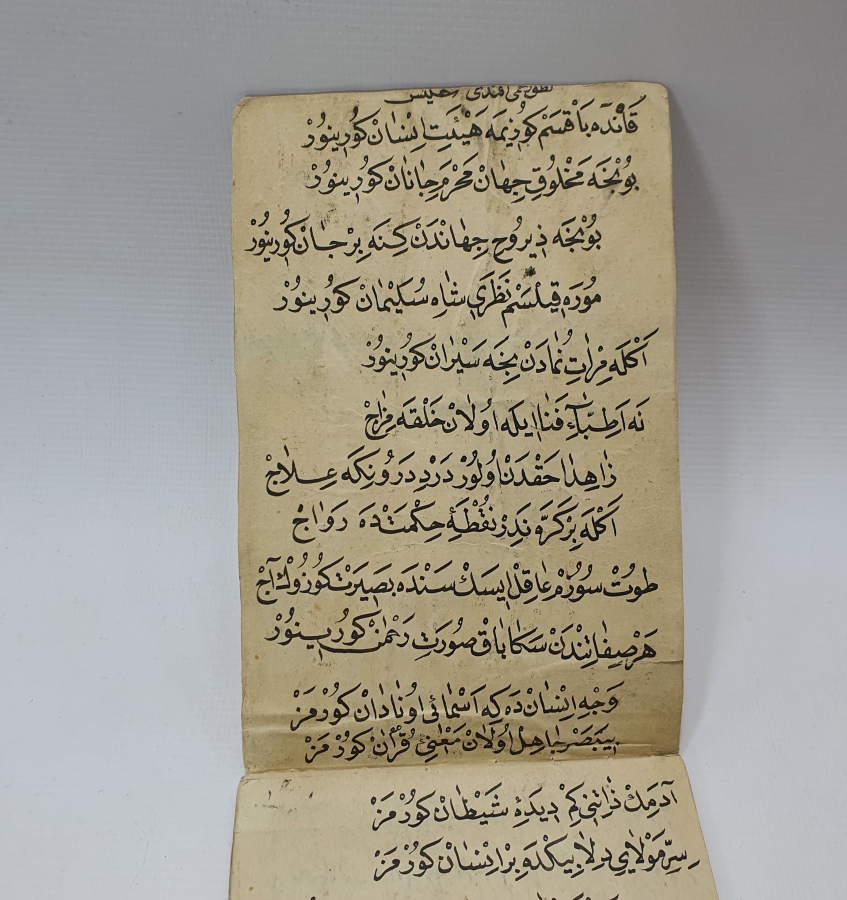 افندى
قَانْدَه بَاقْسَمْ كوُزِيمَه هَيْئَتِ اِنْسَانْ كوُرِينوُرْ
بوُنْجَه مَخْلوُقِ جِهَانْ مَحْرَمِ جَانَانْ كوُرِينوُرْ
بوُنْجَه ذِيروُحِ جِهَاندَنْ كِنَه بِرْ جَانْ كوُرِينوُرْ
موُرَه قِيلْسَمْ نَظَرِى شَاهِ سُلَيْمَانْ كوُرِينوُرْ
اَكْلَه مِرْاٰتِ نُمَادَنْ نِجَه سَيْرَانْ كوُرِينوُرْ
نَه اَطِبَّاۤءِ فَنَا ايلَه اوُلَانْ خَلْقَه مِزَاجْ
زَاهِدَا حَقْدَنْ اوُلوُرْ دَرْدِ دَروُنِكَه عِلَاجْ
اَكْلَه بِرْ كَرَّه نَدِرْ نُقْطَهِٔ حِكْمَتْدَه رَوَاجْ
طوُتْ سوُزُمْ عَاقِلْ ايسَكْ سَنْدَه بَصِيرَتْ كوُزوُكْ آجْ
هَرْ صِفَاتِنْدَنْ سَكَا بَاقْ صوُرَتِ رَحْمٰنْ كوُرِينوُرْ
وَجْهِ اِنْسَانْ دَه كِه اَسْمَائِى اوُ نَادَانْ كوُرْمَزْ
بِيبَصَرْ جَاهِلْ اوُلَانْ مَعْنِىِٔ قُرْاٰنْ كوُرْمَزْ
آدَمِكْ ذَاتِنِى كِمْ دِيدَهِٔ شَيْطَانْ كوُرْمَزْ
سِرِّ مَوْلَايِى دِلَا بِيكْدَه بِرْ اِنْسَانْ كوُرْمَزْ